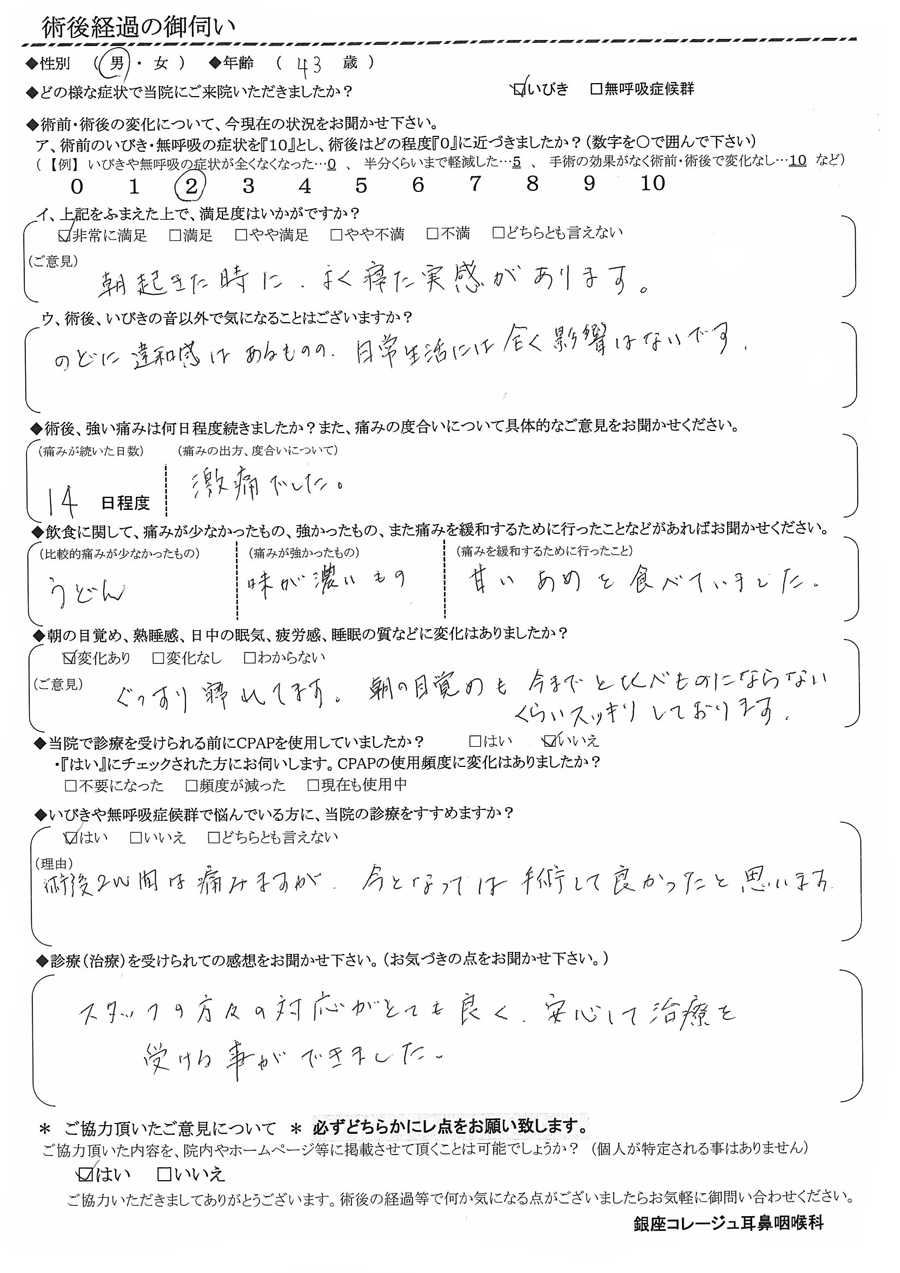 術後経過の御伺い
◆性別 (男・女) ◆年齢 ( 43 歳 )
◆どの様な症状で当院にご来院いただきましたか? ☑いびき □無呼吸症候群
◆術前・術後の変化について、今現在の状況をお聞かせ下さい。
ア、術前のいびき・無呼吸の症状を『10』とし、術後はどの程度『0』に近づきましたか?(数字を○で囲んで下さい)
(【例】 いびきや無呼吸の症状が全くなくなった…0 、 半分くらいまで軽減した…5 、 手術の効果がなく術前・術後で変化なし…10 など)
0 1 2 3 4 5 6 7 8 9 10
イ、上記をふまえた上で、満足度はいかがですか?
☑非常に満足 □満足 □やや満足 □やや不満 □不満 □どちらとも言えない
(ご意見)
朝起きた時に、よく寝た実感があります。
ウ、術後、いびきの音以外で気になることはございますか?
のどに違和感はあるものの、日常生活には全く影響はないです、
◆術後、強い痛みは何日程度続きましたか?また、痛みの度合いについて具体的なご意見をお聞かせください。
(痛みが続いた日数) (痛みの出方、度合いについて)
14 日程度 激痛でした。
◆飲食に関して、痛みが少なかったもの、強かったもの、また痛みを緩和するために行ったことなどがあればお聞かせください。
(比較的痛みが少なかったもの) (痛みが強かったもの) (痛みを緩和するために行ったこと)
うどん 味が濃いもの 甘いあめを食べていました。
◆朝の目覚め、熟睡感、日中の眠気、疲労感、睡眠の質などに変化はありましたか?
☑変化あり □変化なし □わからない
(ご意見) ぐっすり寝れてます。朝の目覚めも今までと比べものにならない
くらいスッキリしております。
◆当院で診療を受けられる前にCPAPを使用していましたか? □はい ☑いいえ
・『はい』にチェックされた方にお伺いします。CPAPの使用頻度に変化はありましたか?
□不要になった □頻度が減った □現在も使用中
◆いびきや無呼吸症候群で悩んでいる方に、当院の診療をすすめますか?
☑はい □いいえ □どちらとも言えない
(理由)
術後2W間は痛みますが、今となっては手術して良かったと思います。
◆診療(治療)を受けられての感想をお聞かせ下さい。(お気づきの点をお聞かせ下さい。)
スタッフの方々の対応がとても良く、安心して治療を
受ける事ができました。
* ご協力頂いたご意見について * 必ずどちらかにレ点をお願い致します。
ご協力頂いた内容を、院内やホームページ等に掲載させて頂くことは可能でしょうか? (個人が特定される事はありません)
☑はい □いいえ
ご協力いただきましてありがとうございます。術後の経過等で何か気になる点がございましたらお気軽に御問い合わせください。
銀座コレージュ耳鼻咽喉科